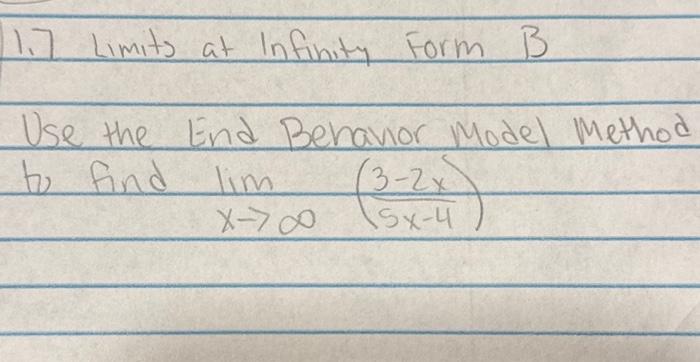 1.7 Limits at Infinity Form B
Use the End Behavior Model Method
to find lim (3-2x / 5x-4)
x→∞